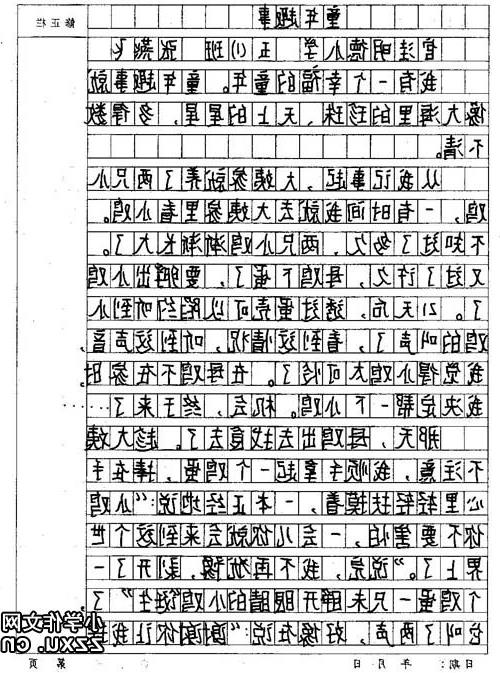 修正栏
童年趣事
官洼明德小学 五(1)班 张燕飞
我有一个幸福的童年。童年趣事就
像大海里的珍珠,天上的星星,多得数
不清。
从我记事起,大姨家就养了两只小
鸡,一有时间我就去大姨家里看小鸡。
不知过了多久,两只小鸡渐渐长大了。
又过了许久,母鸡下蛋了,要孵出小鸡
了。21天后,透过蛋壳可以隐约听到小
鸡的叫声了,看到这情况,听到这声音,
我觉得小鸡太可怜了。在母鸡不在家时,
我决定帮一下小鸡。机会,终于来了……
那天,母鸡出去找食去了。趁大姨
不注意,我顺手拿起一个鸡蛋,捧在手
心里轻轻抚摸着,一本正经地说:“小鸡
你不要害怕,一会儿你就会来到这个世
界上了。”说完,我不再犹豫,剥开了一
个鸡蛋一只未睁开眼睛的小鸡诞生”了
它叫了两声,好像在说:“谢谢你让我
小学作文网
zzxu.cn
日期: 年 月 日 第 页